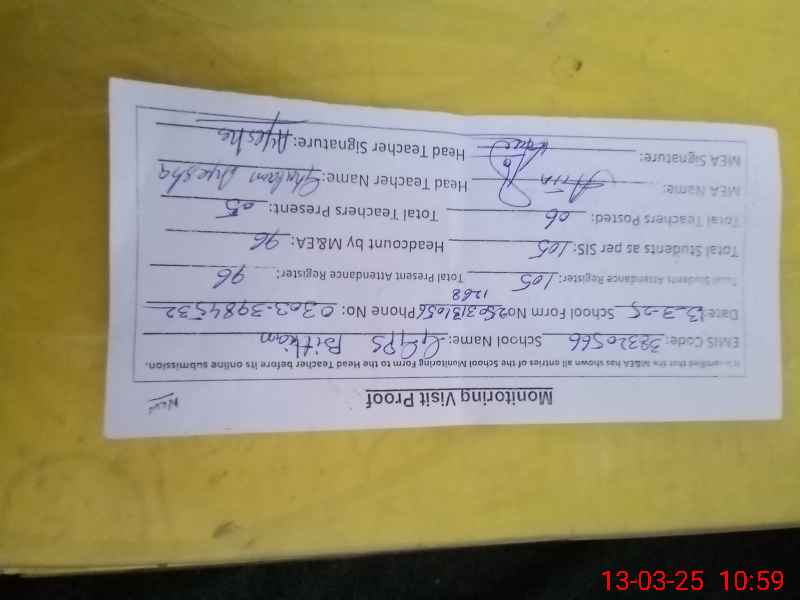 New
Monitoring Visit Proof
It is certified that the M&EA has shown all entries of the School Monitoring Form to the Head Teacher before its online submission.
EMIS Code: 38320566 School Name: GGPS Bitham
Date: 13-3-25 School Form No: 2503131056 1268 Phone No: 0303-3984532
Total Students Attendance Register: 105 Total Present Attendance Register: 96
Total Students as per SIS: 105 Headcount by M&EA: 96
Total Teachers Posted: 06 Total Teachers Present: 05
MEA Name: Head Teacher Name: Ghulam Ayesha
MEA Signature: Head Teacher Signature: Ayesha
13-03-25 10:59